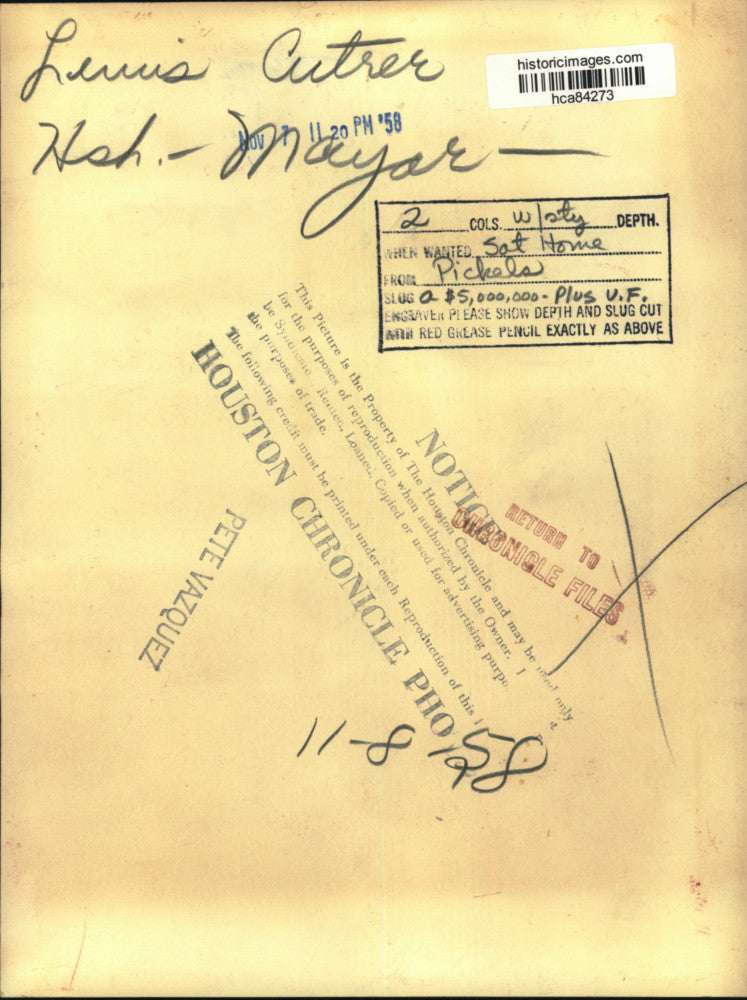 Lewis Cutrer
historicimages.com
hca84273
Hsh. - Mayor -
NOV 7 11 20 PM '58
2 COLS. w/sty DEPTH.
WHEN WANTED Sat Home
FROM Pickels
SLUG a $5,000,000 - Plus U.F.
ENGRAVER PLEASE SHOW DEPTH AND SLUG CUT
WITH RED GREASE PENCIL EXACTLY AS ABOVE
NOTICE
This Picture is the Property of The Houston Chronicle and may be used only
for the purposes of reproduction when authorized by the Owner. I
be Syndicate Rented, Loaned, Copied or used for advertising purpo
the purposes of trade.
The following credit must be printed under each Reproduction of this
HOUSTON CHRONICLE PHO
RETURN TO
CHRONICLE FILES
PETE VAZQUEZ
11-8-58